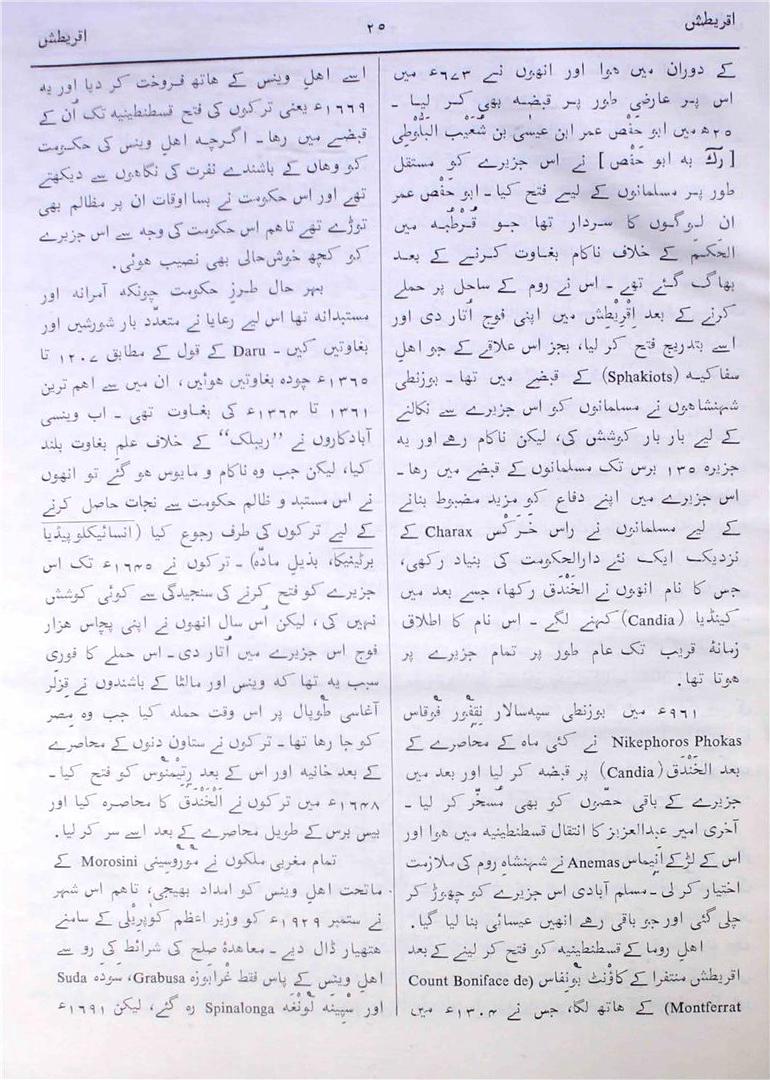 اقریطش
۲۵
اقریطش
کے دوران میں ہوا اور انھوں نے ۶۷۳ء میں
اس پر عارضی طور پر قبضہ بھی کر لیا ۔
۲۵ھ میں ابو حَفْص عمر ابن عیسٰی بن شُعَیْب البَلُّوْطی
[رکّ بہ ابو حَفْص] نے اس جزیرے کو مستقل
طور پر مسلمانوں کے لیے فتح کیا ۔ ابو حَفْص عمر
ان لوگوں کا سردار تھا جو قُرْطُبہ میں
الحَکَم کے خلاف ناکام بغاوت کرنے کے بعد
بھاگ گئے تھے ۔ اس نے روم کے ساحل پر حملے
کرنے کے بعد اِقْرِیْطِش میں اپنی فوج اُتار دی اور
اسے بتدریج فتح کر لیا، بجز اس علاقے کے جو اہلِ
سفاکیہ (Sphakiots) کے قبضے میں تھا ۔ بوزنطی
شہنشاہوں نے مسلمانوں کو اس جزیرے سے نکالنے
کے لیے بار بار کوشش کی، لیکن ناکام رہے اور یہ
جزیرہ ۱۳۵ برس تک مسلمانوں کے قبضے میں رہا ۔
اس جزیرے میں اپنے دفاع کو مزید مضبوط بنانے
کے لیے مسلمانوں نے راس خَرَکْس Charax کے
نزدیک ایک نئے دارالحکومت کی بنیاد رکھی،
جس کا نام انھوں نے الخَنْدَق رکھا، جسے بعد میں
کینڈیا (Candia) کہنے لگے ۔ اس نام کا اطلاق
زمانۂ قریب تک عام طور پر تمام جزیرے پر
ہوتا تھا ۔
۹۶۱ء میں بوزنطی سپہ سالار نِقِفُور فُوقاس
Nikephoros Phokas نے کئی ماہ کے محاصرے کے
بعد الخَنْدَق (Candia) پر قبضہ کر لیا اور بعد میں
جزیرے کے باقی حصّوں کو بھی مُسخّر کر لیا ۔
آخری امیر عبدالعزیز کا انتقال قسطنطینیہ میں ہوا اور
اس کے لڑکے اَنِیماس Anemas نے شہنشاہِ روم کی ملازمت
اختیار کر لی ۔ مسلم آبادی اس جزیرے کو چھوڑ کر
چلی گئی اور جو باقی رہے انھیں عیسائی بنا لیا گیا ۔
اہلِ روما کے قسطنطینیہ کو فتح کر لینے کے بعد
اقریطش منتفرا کے کاؤنٹ بُونِفاس (Count Boniface de
Montferrat) کے ہاتھ لگا، جس نے ۱۳۰۴ء میں
اسے اہلِ وینس کے ہاتھ فروخت کر دیا اور یہ
۱۶۶۹ء یعنی ترکوں کی فتح قسطنطینیہ تک اُن کے
قبضے میں رہا ۔ اگرچہ اہلِ وینس کی حکومت
کو وہاں کے باشندے نفرت کی نگاہوں سے دیکھتے
تھے اور اس حکومت نے بسا اوقات ان پر مظالم بھی
توڑے تھے تاہم اس حکومت کی وجہ سے اس جزیرے
کو کچھ خوش حالی بھی نصیب ہوئی.
بہر حال طرزِ حکومت چونکہ آمرانہ اور
مستبدانہ تھا اس لیے رعایا نے متعدّد بار شورشیں اور
بغاوتیں کیں ۔ Daru کے قول کے مطابق ۱۲۰۷ تا
۱۳۶۵ء چودہ بغاوتیں ہوئیں، ان میں سے اہم ترین
۱۳۶۱ تا ۱۳۶۴ء کی بغاوت تھی ۔ اب وینسی
آبادکاروں نے ”ریپبلک“ کے خلاف علمِ بغاوت بلند
کیا، لیکن جب وہ ناکام و مایوس ہو گئے تو انھوں
نے اس مستبد و ظالم حکومت سے نجات حاصل کرنے
کے لیے ترکوں کی طرف رجوع کیا (انسائیکلوپیڈیا
برٹینیکا، بذیل مادّہ) ۔ ترکوں نے ۱۶۴۵ء تک اس
جزیرے کو فتح کرنے کی سنجیدگی سے کوئی کوشش
نہیں کی، لیکن اُس سال انھوں نے اپنی پچاس ہزار
فوج اس جزیرے میں اُتار دی ۔ اس حملے کا فوری
سبب یہ تھا کہ وینس اور مالٹا کے باشندوں نے قِزلر
آغاسی طُوپال پر اس وقت حملہ کیا جب وہ مصر
کو جا رہا تھا ۔ ترکوں نے ستاون دنوں کے محاصرے
کے بعد خانیہ اور اس کے بعد رِتِیْمنُوس کو فتح کیا ۔
۱۶۴۸ء میں ترکوں نے اَلخَنْدَق کا محاصرہ کیا اور
بیس برس کے طویل محاصرے کے بعد اسے سر کر لیا.
تمام مغربی ملکوں نے مُوروسِینی Morosini کے
ماتحت اہلِ وینس کو امداد بھیجی، تاہم اس شہر
نے ستمبر ۱۹۲۹ء کو وزیر اعظم کوپریلی کے سامنے
ہتھیار ڈال دیے ۔ معاہدۂ صلح کی شرائط کی رو سے
اہلِ وینس کے پاس فقط غرابوزہ Grabusa، سَودَہ Suda
اور سْپِینہ لُونْغہ Spinalonga رہ گئے، لیکن ۱۶۹۱ء